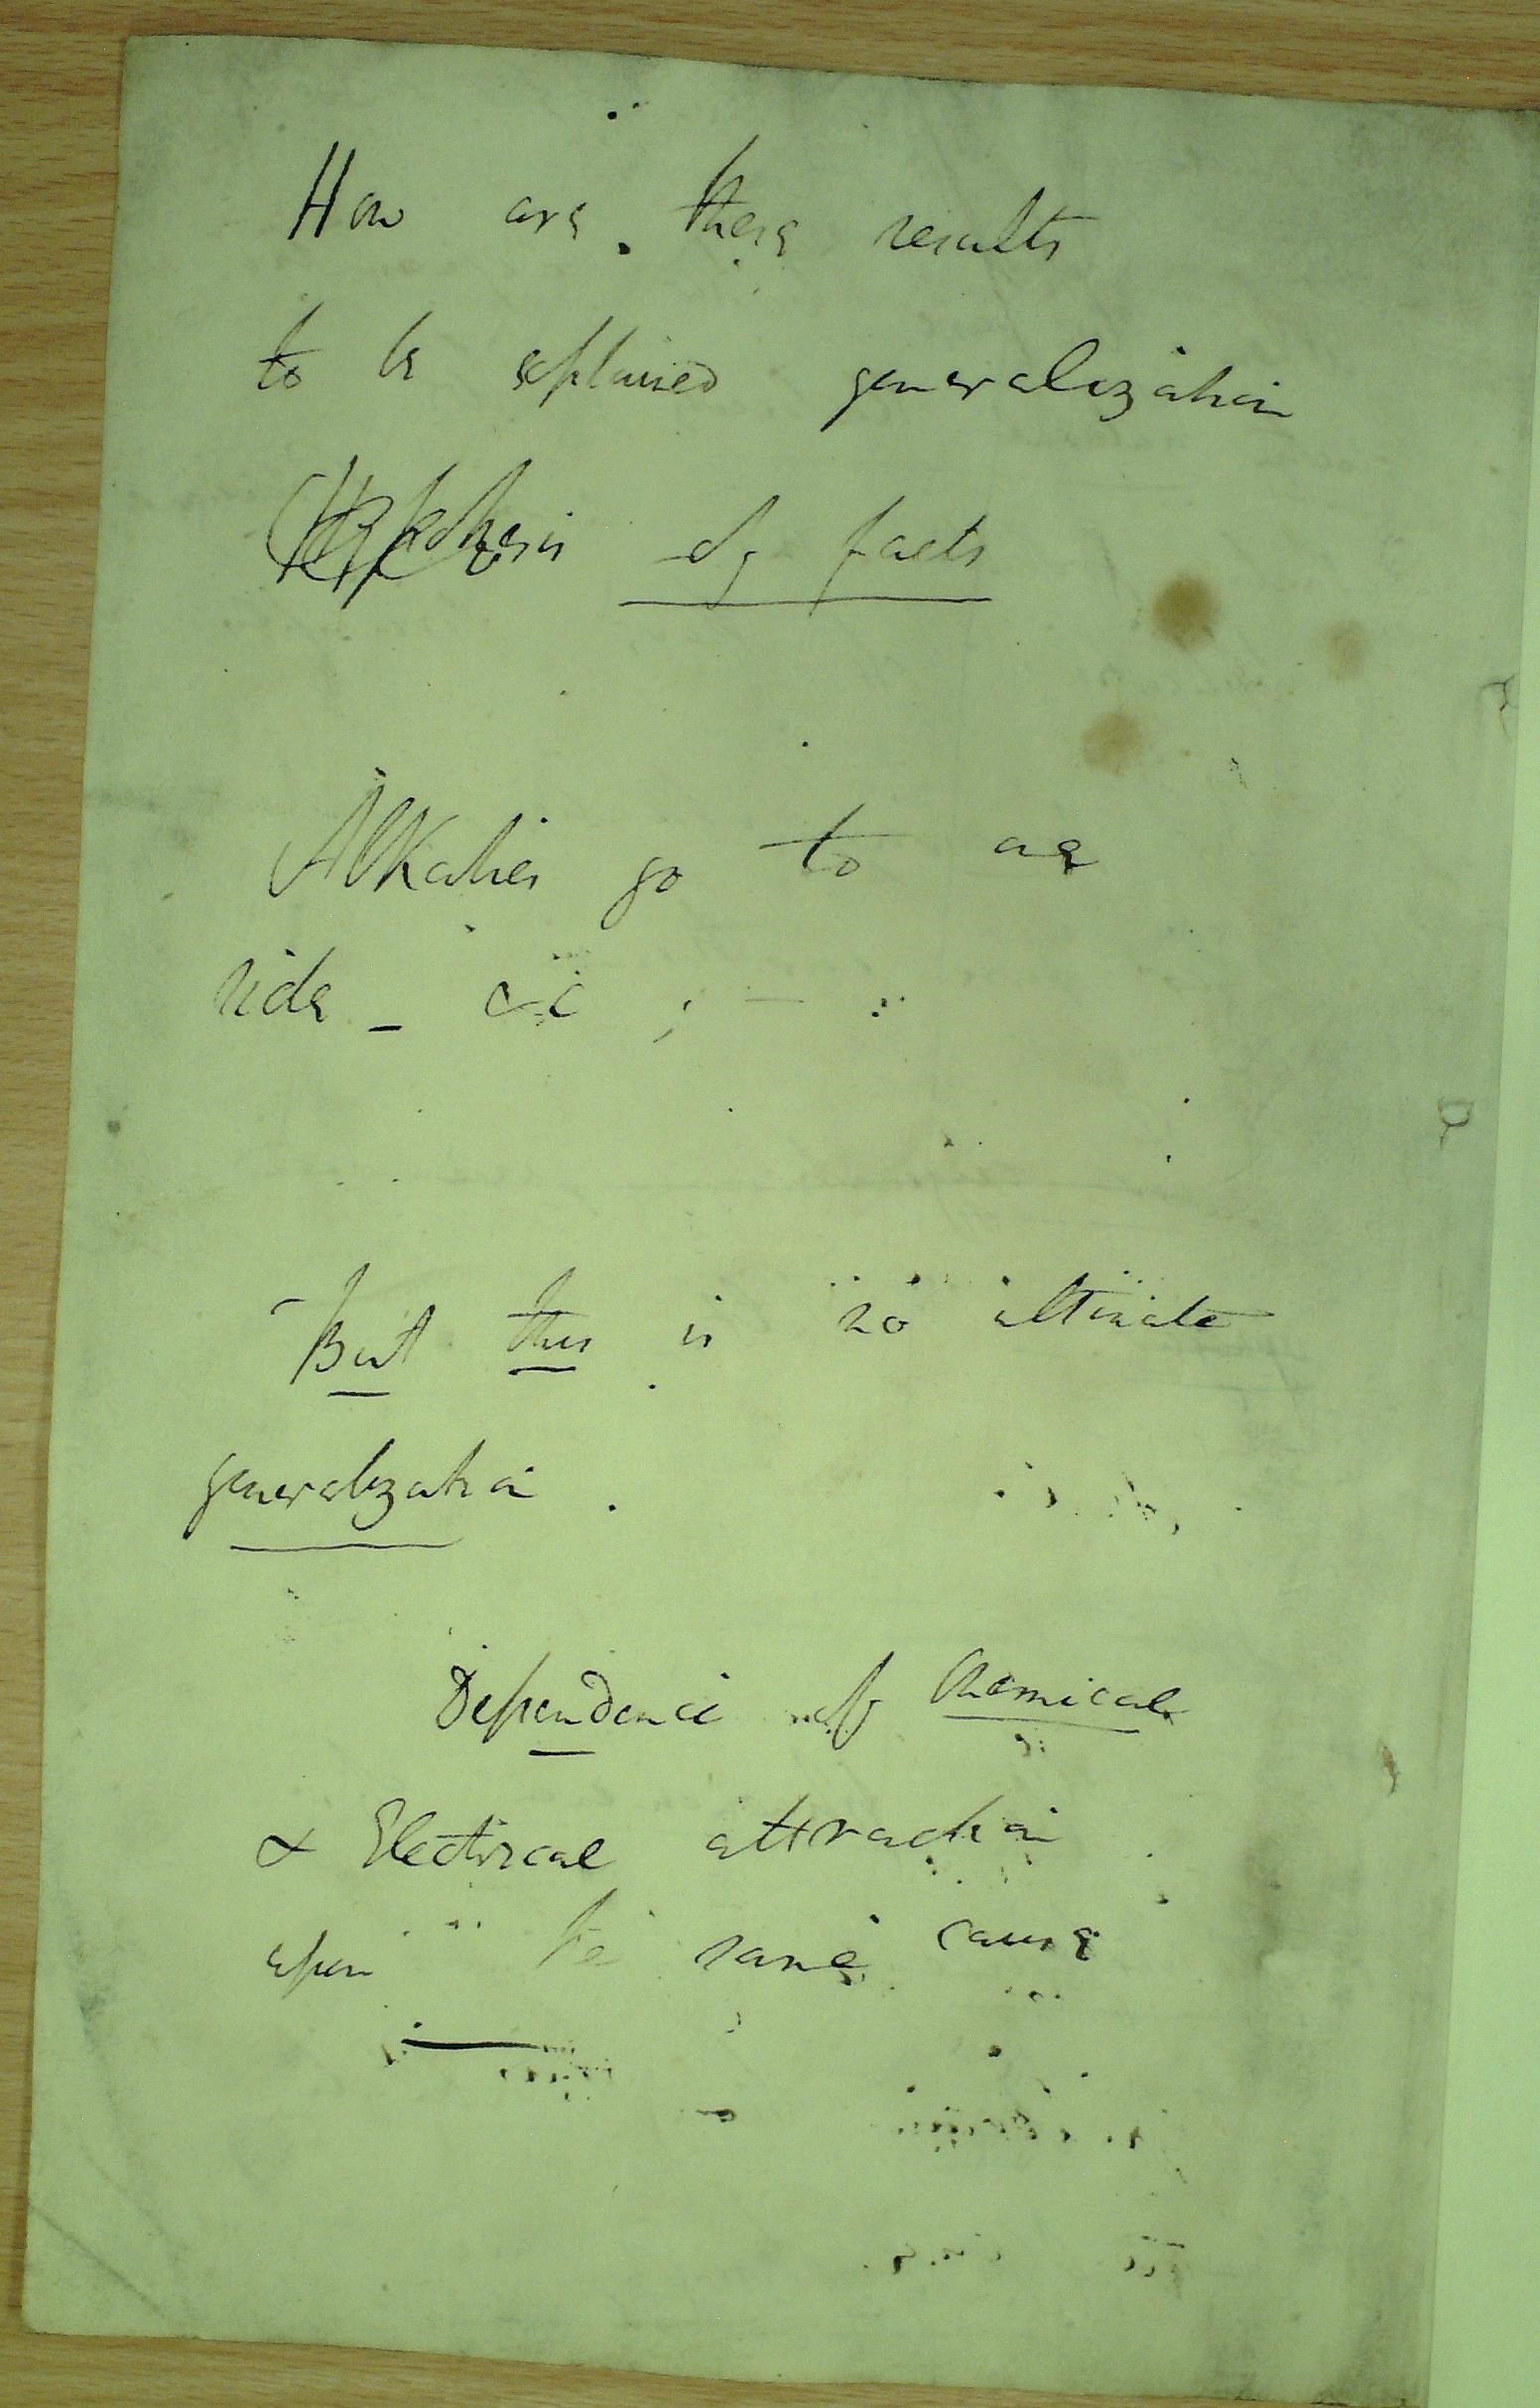 How are these results
to be explained generalization
Hypothesis of facts
Alkalies go to one
side - &c ; -
But this is no ultimate
generalization .
Dependence of Chemical
& Electrical attraction
upon the same cause